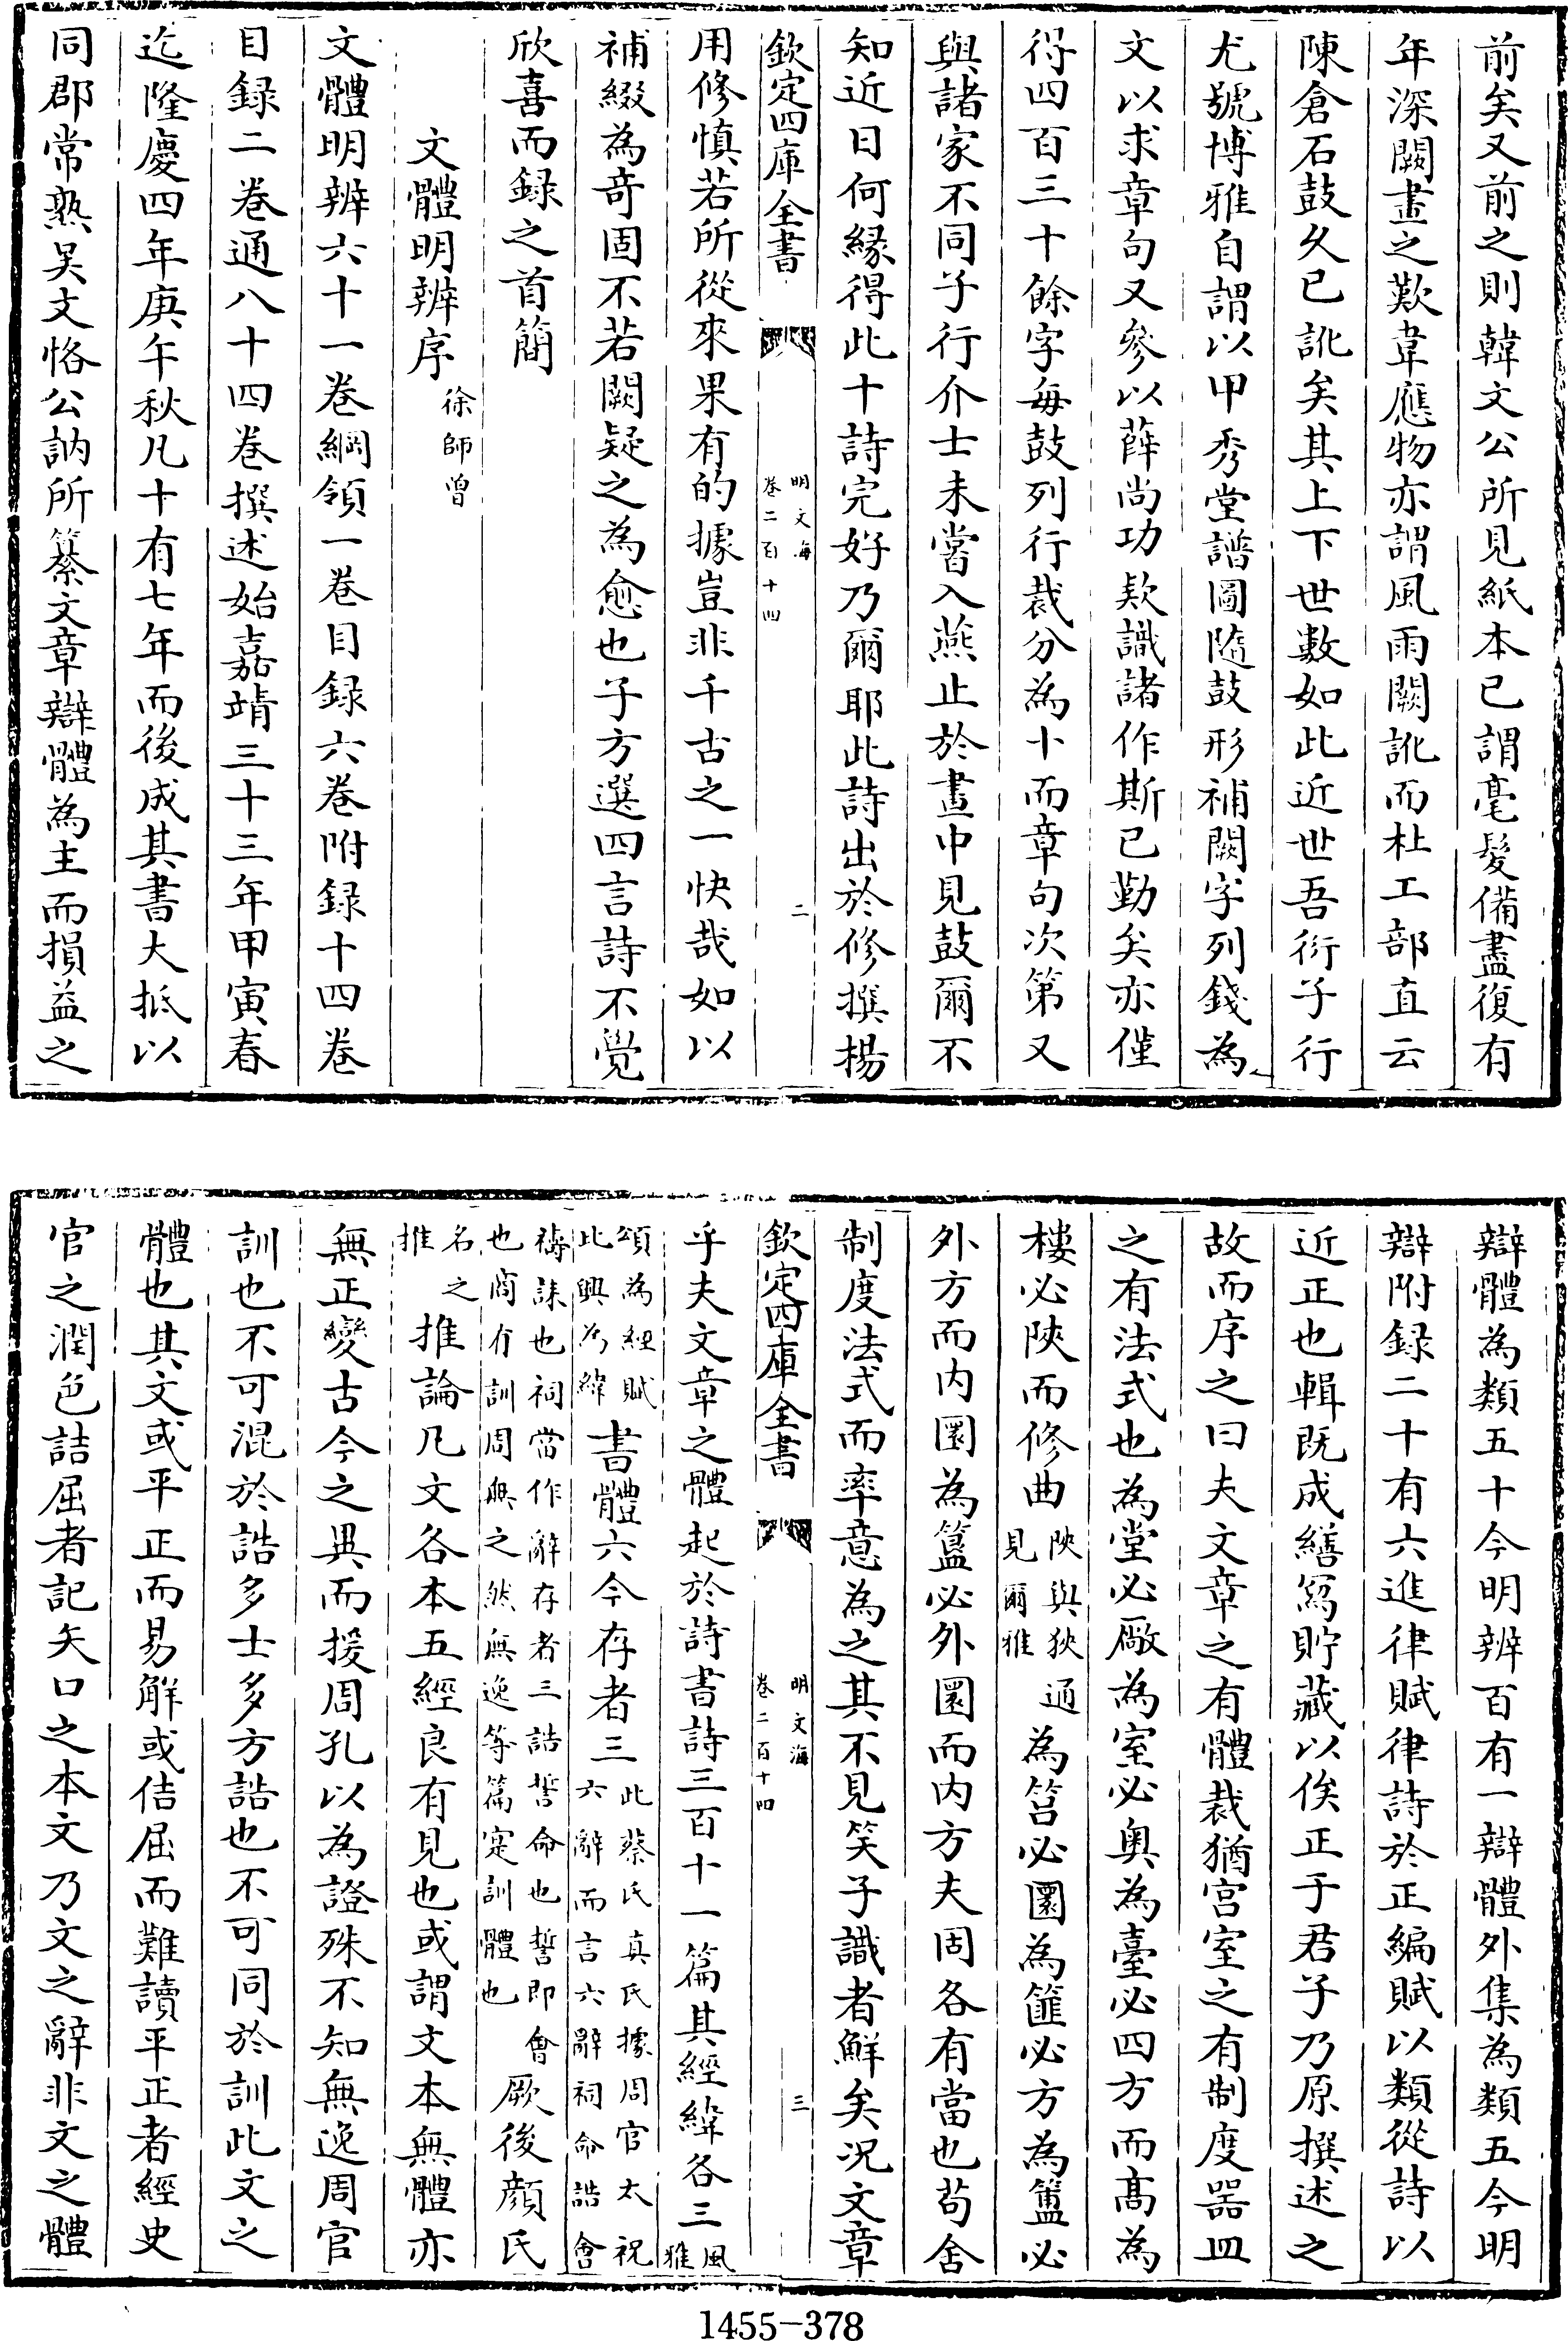 前矣又前之則韓文公所見紙本已謂毫髮備盡復有
年深闕畫之歎韋應物亦謂風雨闕訛而杜工部直云
陳倉石鼓久已訛矣其上下世數如此近世吾衍子行
尤號博雅自謂以甲秀堂譜圖隨鼓形補闕字列錢為
文以求章句又參以薛尚功欵識諸作斯已勤矣亦僅
得四百三十餘字每鼓列行裁分為十而章句次第又
與諸家不同子行介士未嘗入燕止於畫中見鼓爾不
知近日何縁得此十詩完好乃爾耶此詩出於修撰楊
欽定四庫全書
明文海
卷二百十四
二
用修慎若所從來果有的據豈非千古之一快哉如以
補綴為奇固不若闕疑之為愈也子方選四言詩不覺
欣喜而録之首簡
文體明辨序 徐師曾
文體明辨六十一卷綱領一卷目録六卷附録十四卷
目録二卷通八十四卷撰述始嘉靖三十三年甲寅春
迄隆慶四年庚午秋凡十有七年而後成其書大抵以
同郡常熟吳文恪公訥所纂文章辯體為主而損益之
辯體為類五十今明辨百有一辯體外集為類五今明
辯附録二十有六進律賦律詩於正編賦以類從詩以
近正也輯既成繕寫貯藏以俟正于君子乃原撰述之
故而序之曰夫文章之有體裁猶宫室之有制度器皿
之有法式也為堂必廠為室必奥為臺必四方而髙為
樓必陜而修曲陜與狹通
見爾雅為筥必圜為篚必方為簠必
外方而内圜為簋必外圜而内方夫固各有當也茍舍
制度法式而率意為之其不見笑子識者鮮矣况文章
欽定四庫全書
明文海
卷二百十四
三
乎夫文章之體起於詩書詩三百十一篇其經緯各三風
雅
頌為經賦
比興為緯書體六今存者三此蔡氏真氏據周官太祝
六辭而言六辭祠命誥會
禱誄也祠當作辭存者三誥誓命也誓即會
也商有訓周無之然無逸等篇寔訓體也厥後顔氏
名之
推推論凡文各本五經良有見也或謂文本無體亦
無正變古今之異而援周孔以為證殊不知無逸周官
訓也不可混於誥多士多方誥也不可同於訓此文之
體也其文或平正而易解或佶屈而難讀平正者經史
官之潤色詰屈者記矢口之本文乃文之辭非文之體
1455-378